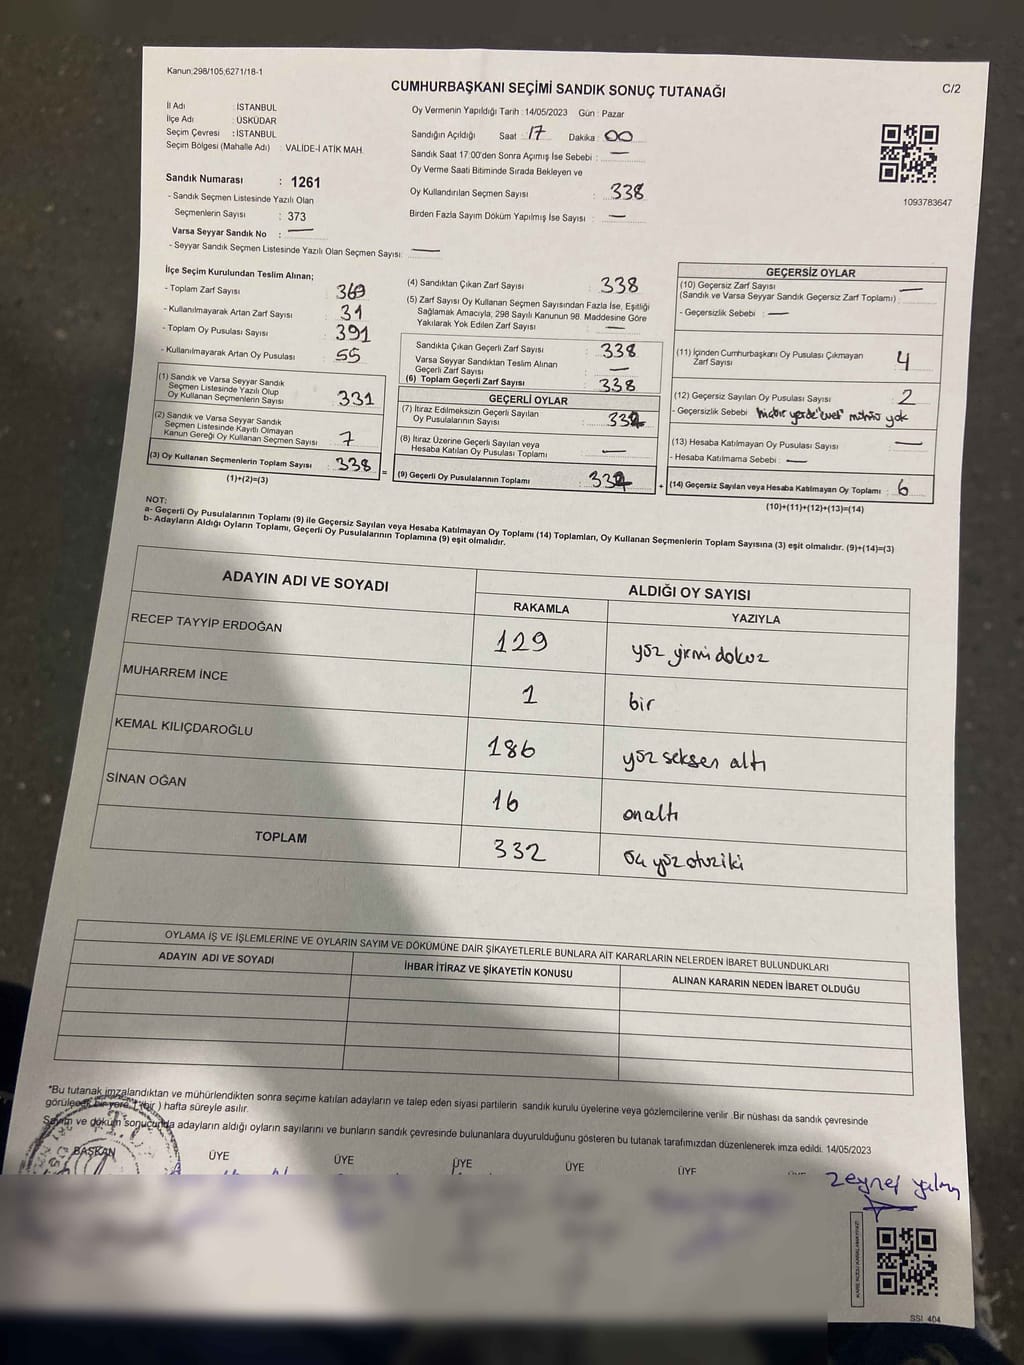 Kanun;298/105,6271/18-1
CUMHURBAŞKANI SEÇİMİ SANDIK SONUÇ TUTANAĞI
C/2
İl Adı : İSTANBUL
İlçe Adı : ÜSKÜDAR
Seçim Çevresi : İSTANBUL
Seçim Bölgesi (Mahalle Adı) : VALİDE-İ ATİK MAH.
Sandık Numarası : 1261
- Sandık Seçmen Listesinde Yazılı Olan
Seçmenlerin Sayısı : 373
Varsa Seyyar Sandık No : —
- Seyyar Sandık Seçmen Listesinde Yazılı Olan Seçmen Sayısı: —
Oy Vermenin Yapıldığı Tarih : 14/05/2023 Gün : Pazar
Sandığın Açıldığı Saat : 17 Dakika : 00
Sandık Saat 17:00'den Sonra Açımış İse Sebebi : —
Oy Verme Saati Bitiminde Sırada Bekleyen ve
Oy Kullandırılan Seçmen Sayısı : 338
Birden Fazla Sayım Döküm Yapılmış İse Sayısı : —
1093783647
İlçe Seçim Kurulundan Teslim Alınan;
- Toplam Zarf Sayısı : 369
- Kullanılmayarak Artan Zarf Sayısı : 31
- Toplam Oy Pusulası Sayısı : 391
- Kullanılmayarak Artan Oy Pusulası : 55
(1) Sandık ve Varsa Seyyar Sandık
Seçmen Listesinde Yazılı Olup
Oy Kullanan Seçmenlerin Sayısı : 331
(2) Sandık ve Varsa Seyyar Sandık
Seçmen Listesinde Kayıtlı Olmayan
Kanun Gereği Oy Kullanan Seçmen Sayısı : 7
(3) Oy Kullanan Seçmenlerin Toplam Sayısı : 338
(1)+(2)=(3)
(4) Sandıktan Çıkan Zarf Sayısı : 338
(5) Zarf Sayısı Oy Kullanan Seçmen Sayısından Fazla İse, Eşitliği
Sağlamak Amacıyla, 298 Sayılı Kanunun 98. Maddesine Göre
Yakılarak Yok Edilen Zarf Sayısı : —
Sandıkta Çıkan Geçerli Zarf Sayısı : 338
Varsa Seyyar Sandıktan Teslim Alınan
Geçerli Zarf Sayısı : —
(6) Toplam Geçerli Zarf Sayısı : 338
GEÇERLİ OYLAR
(7) İtiraz Edilmeksizin Geçerli Sayılan
Oy Pusulalarının Sayısı : 332
(8) İtiraz Üzerine Geçerli Sayılan veya
Hesaba Katılan Oy Pusulası Toplamı : —
= (9) Geçerli Oy Pusulalarının Toplamı : 332
GEÇERSİZ OYLAR
(10) Geçersiz Zarf Sayısı : —
(Sandık ve Varsa Seyyar Sandık Geçersiz Zarf Toplamı)
- Geçersizlik Sebebi : —
(11) İçinden Cumhurbaşkanı Oy Pusulası Çıkmayan
Zarf Sayısı : 4
(12) Geçersiz Sayılan Oy Pusulası Sayısı : 2
- Geçersizlik Sebebi : hiçbir yerde "evet" mührü yok
(13) Hesaba Katılmayan Oy Pusulası Sayısı : —
- Hesaba Katılmama Sebebi : —
+ (14) Geçersiz Sayılan veya Hesaba Katılmayan Oy Toplamı : 6
(10)+(11)+(12)+(13)=(14)
NOT:
a- Geçerli Oy Pusulalarının Toplamı (9) ile Geçersiz Sayılan veya Hesaba Katılmayan Oy Toplamı (14) Toplamları, Oy Kullanan Seçmenlerin Toplam Sayısına (3) eşit olmalıdır. (9)+(14)=(3)
b- Adayların Aldığı Oyların Toplamı, Geçerli Oy Pusulalarının Toplamına (9) eşit olmalıdır.
ADAYIN ADI VE SOYADI
ALDIĞI OY SAYISI
RAKAMLA YAZIYLA
RECEP TAYYİP ERDOĞAN 129 yüz yirmi dokuz
MUHARREM İNCE 1 bir
KEMAL KILIÇDAROĞLU 186 yüz seksen altı
SİNAN OĞAN 16 on altı
TOPLAM 332 üç yüz otuz iki
OYLAMA İŞ VE İŞLEMLERİNE VE OYLARIN SAYIM VE DÖKÜMÜNE DAİR ŞİKAYETLERLE BUNLARA AİT KARARLARIN NELERDEN İBARET BULUNDUKLARI
ADAYIN ADI VE SOYADI İHBAR İTİRAZ VE ŞİKAYETİN KONUSU ALINAN KARARIN NEDEN İBARET OLDUĞU
*Bu tutanak imzalandıktan ve mühürlendikten sonra seçime katılan adayların ve talep eden siyasi partilerin sandık kurulu üyelerine veya gözlemcilerine verilir .Bir nüshası da sandık çevresinde
görülecek bir yere 1 (bir ) hafta süreyle asılır.
Sayım ve döküm sonucunda adayların aldığı oyların sayılarını ve bunların sandık çevresinde bulunanlara duyurulduğunu gösteren bu tutanak tarafımızdan düzenlenerek imza edildi. 14/05/2023
BAŞKAN ÜYE ÜYE ÜYE ÜYE ÜYE
Zeynep
SSI 404